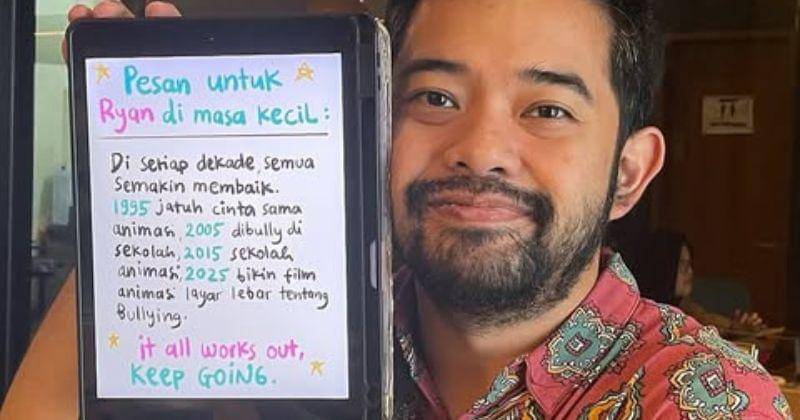 Pesan untuk
Ryan di masa kecil:
Di setiap dekade, semua
semakin membaik.
1995 jatuh cinta sama
animasi, 2005 dibully di
sekolah, 2015 sekolah
animasi, 2025 bikin film
animasi layar lebar tentang
Bullying.
it all works out,
KEEP GOING.